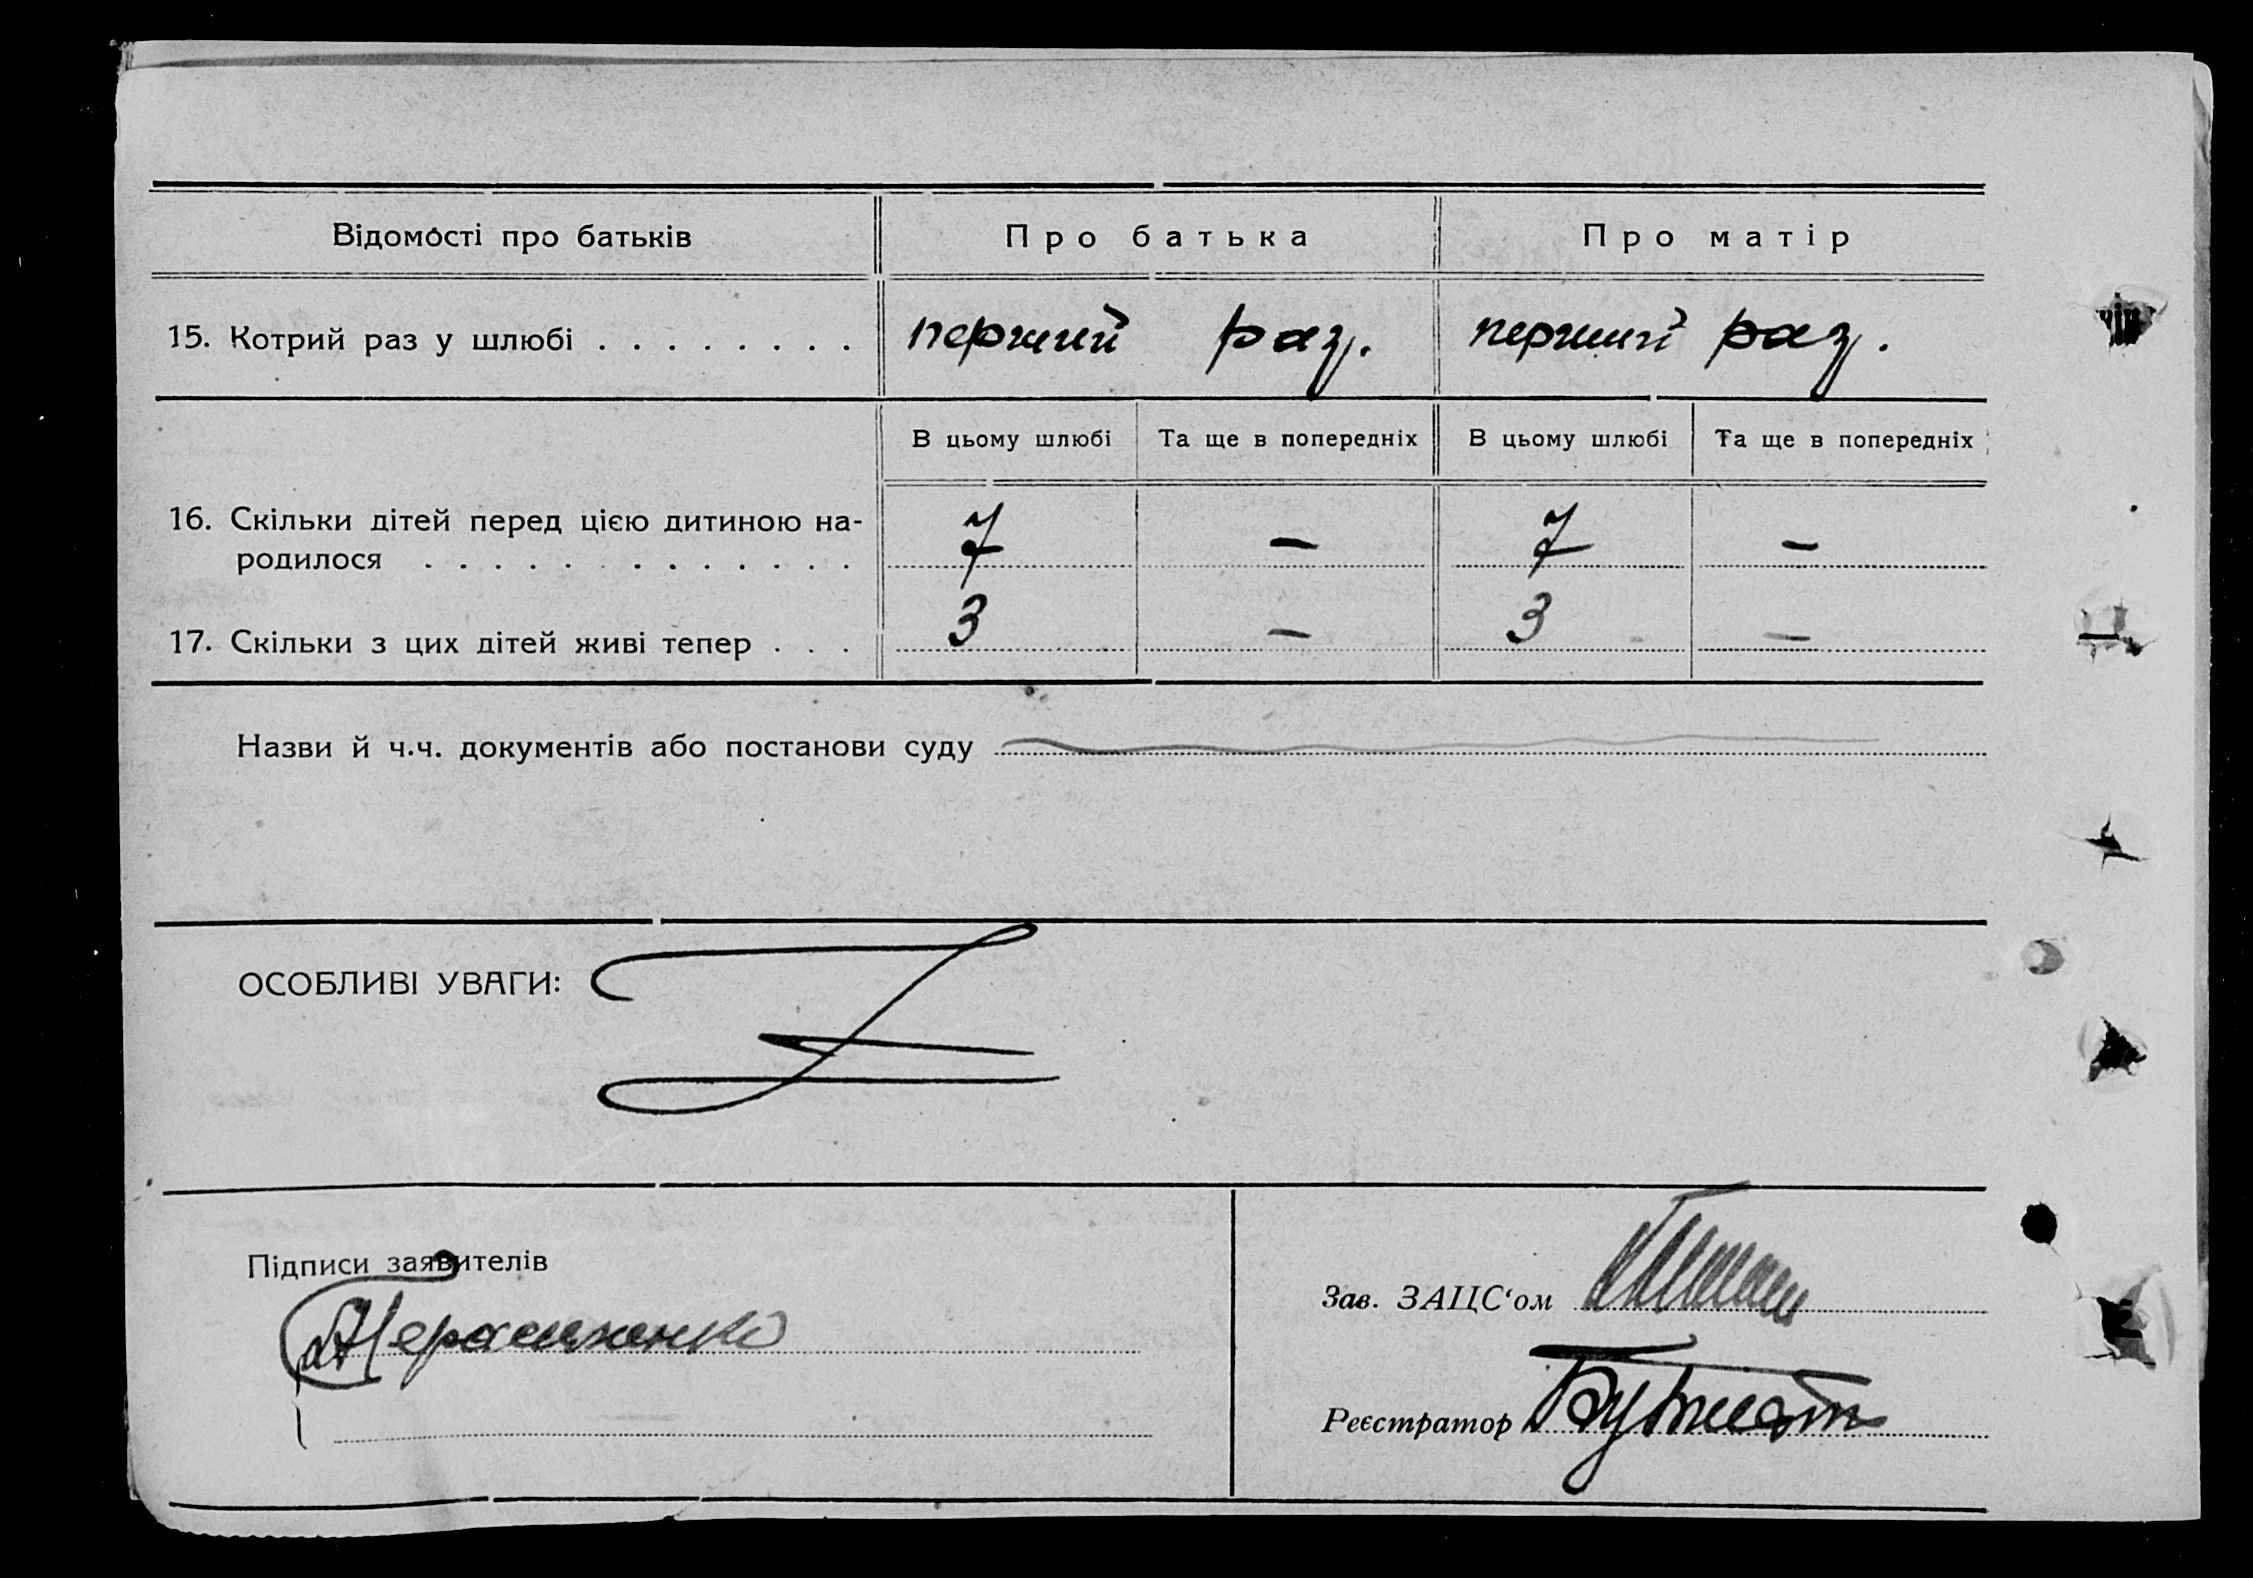 Відомості про батьків Про батька Про матір
15. Котрий раз у шлюбі . . . . . . . . перший раз. перший раз.
В цьому шлюбі Та ще в попередніх В цьому шлюбі Та ще в попередніх
16. Скільки дітей перед цією дитиною на-
родилося . . . . . . . . . . . . . 7 — 7 —
17. Скільки з цих дітей живі тепер . . . 3 — 3 —
Назви й ч.ч. документів або постанови суду
ОСОБЛИВІ УВАГИ:
Підписи заявителів
Зав. ЗАЦС‘ом
Реєстратор